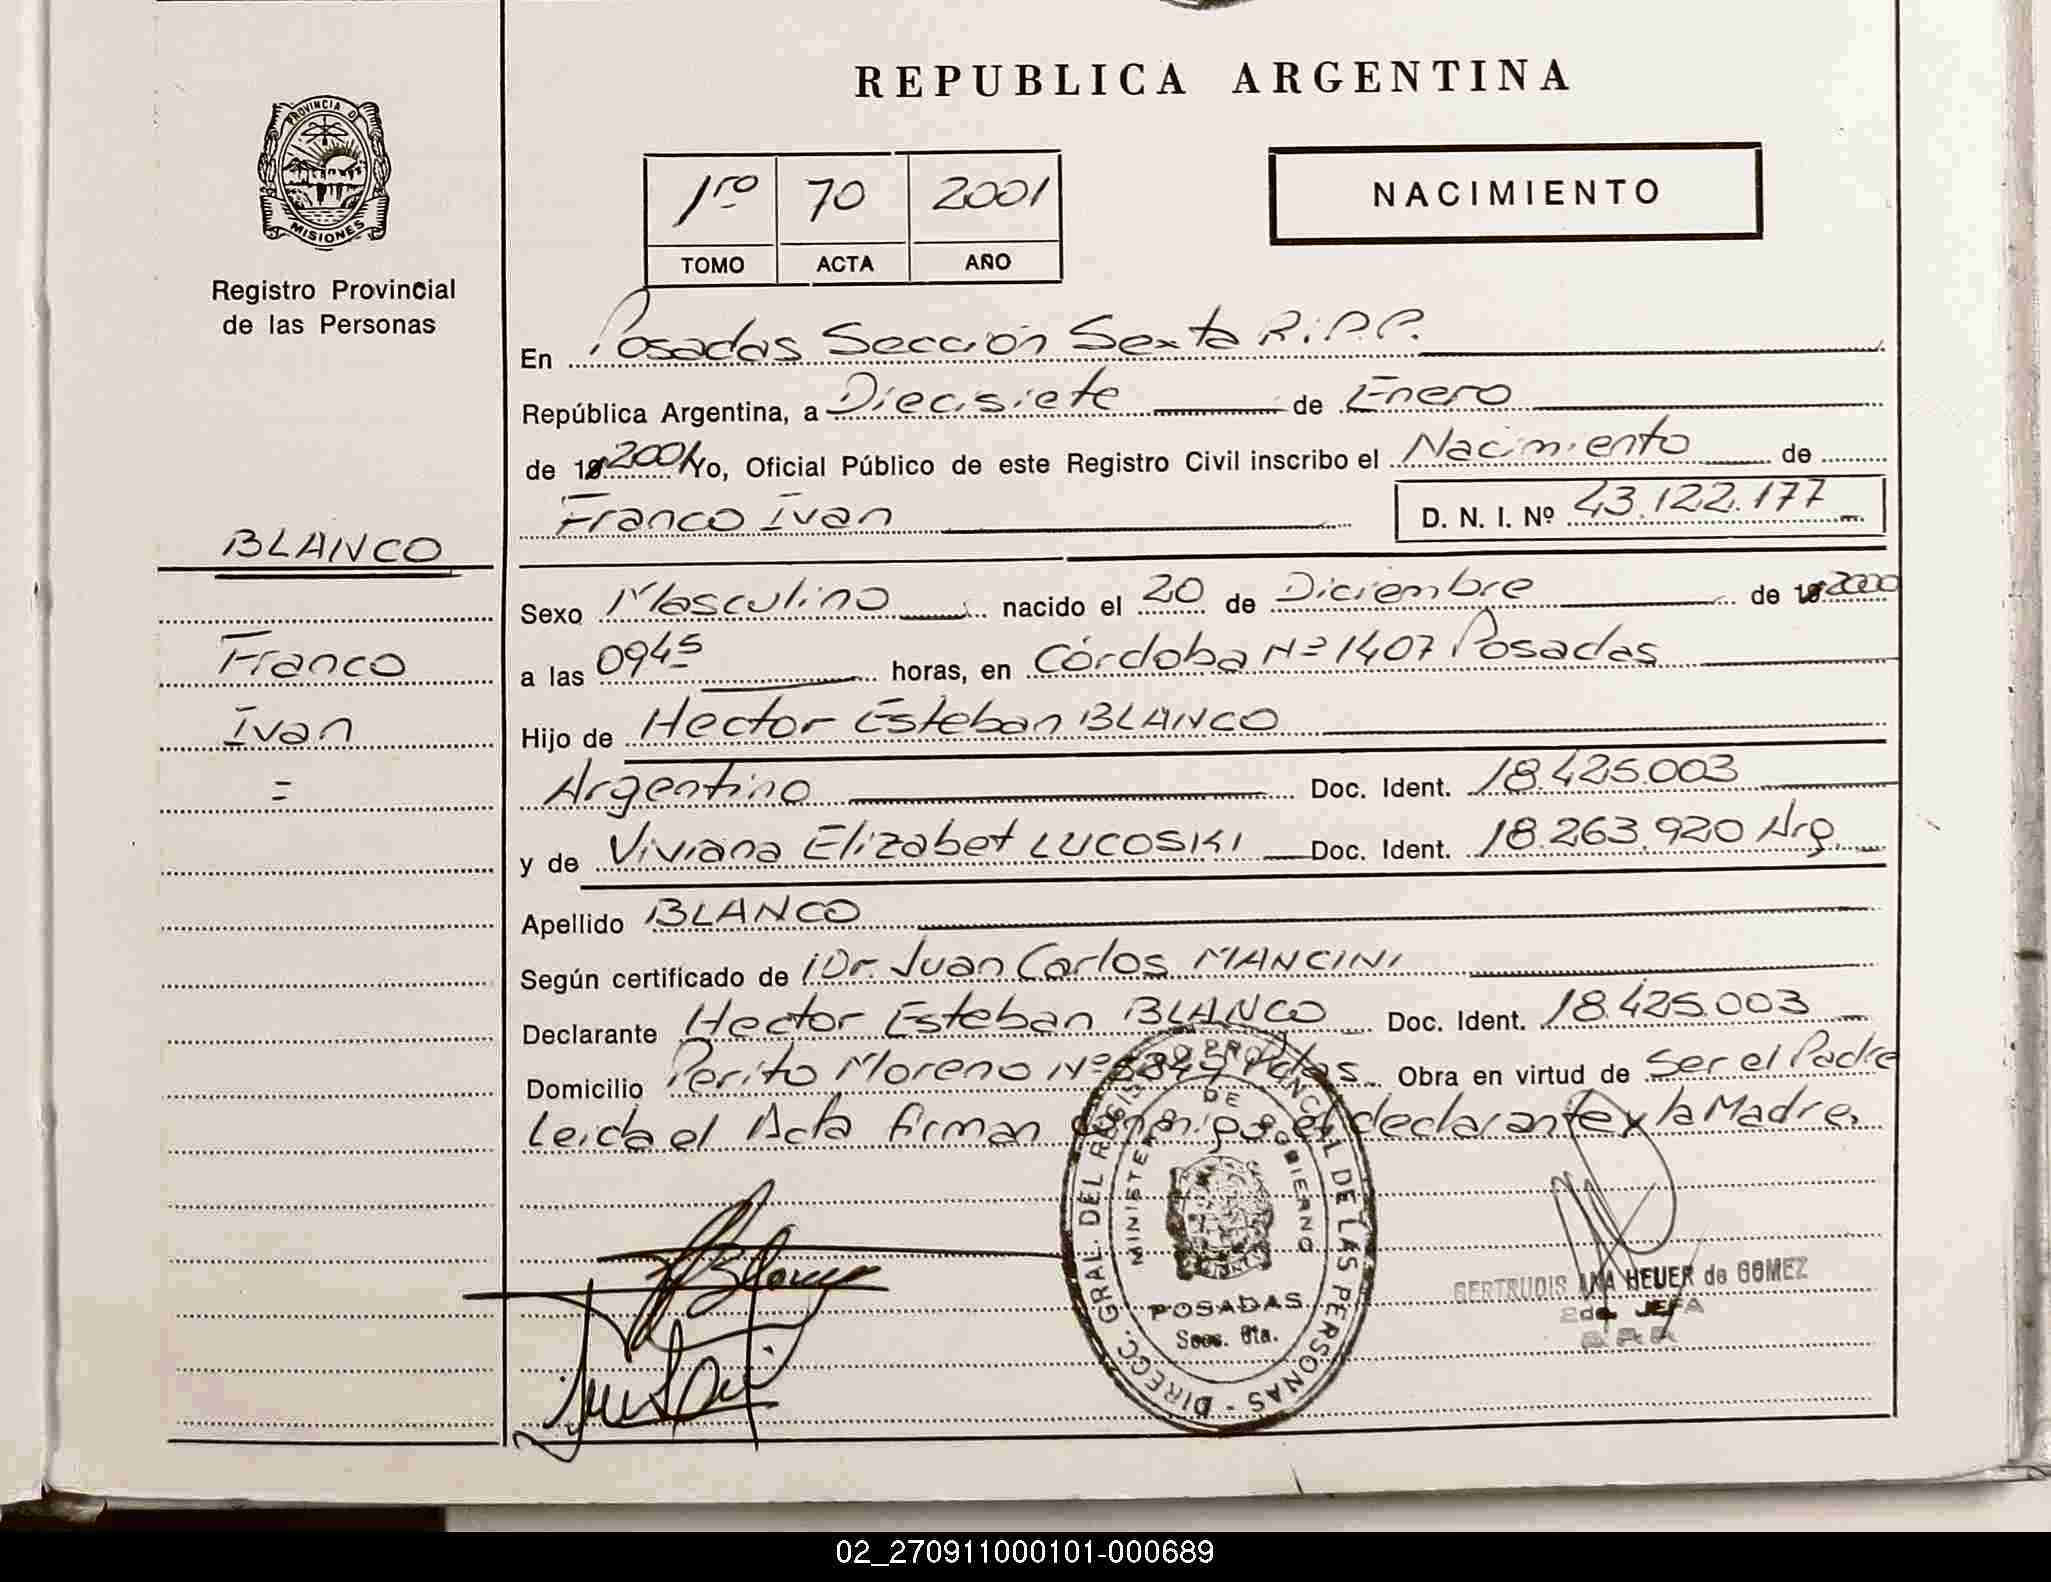 REPUBLICA ARGENTINA
PROVINCIA DE
MISIONES
Registro Provincial
de las Personas
1ro 70 2001
TOMO ACTA AÑO
NACIMIENTO
En Posadas Sección Sexta R.P.P.
República Argentina, a Diecisiete de Enero
de 2001 Yo, Oficial Público de este Registro Civil inscribo el Nacimiento de
Franco Ivan D. N. I. Nº 43.122.177
BLANCO
Franco
Ivan
=
Sexo Masculino nacido el 20 de Diciembre de 2000
a las 0945 horas, en Córdoba Nº 1407 Posadas
Hijo de Hector Esteban BLANCO
Argentino Doc. Ident. 18.425.003
y de Viviana Elizabet LUCOSKI Doc. Ident. 18.263.920 Arg.
Apellido BLANCO
Según certificado de Dr. Juan Carlos MANCINI
Declarante Hector Esteban BLANCO Doc. Ident. 18.425.003
Domicilio Perito Moreno Nº Pdas. Obra en virtud de Ser el Padre
Leida el Acta firman conmigo el declarante y la Madre.
DIRECC. GRAL. DEL REGISTRO PROVINCIAL DE LAS PERSONAS -
MINISTERIO DE GOBIERNO
POSADAS
Secc. 6ta.
GERTRUDIS ANA HEUER de GOMEZ
2da JEFA
02_270911000101-000689